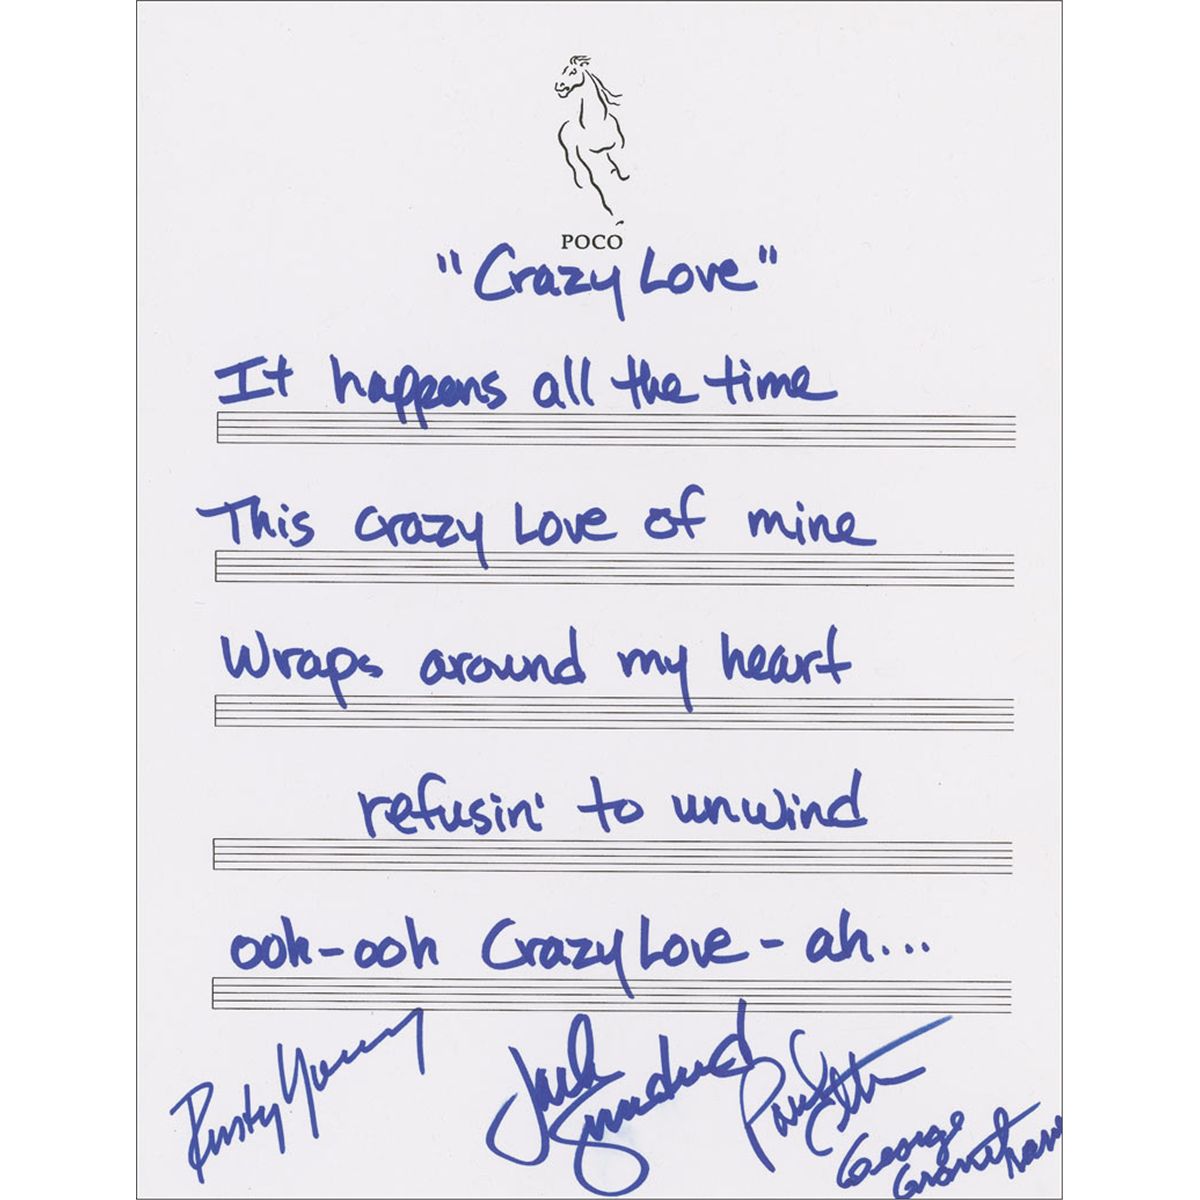 POCO
"Crazy Love"
It happens all the time
This crazy Love of mine
Wraps around my heart
refusin' to unwind
ooh-ooh Crazy Love - ah...
Rusty Young
Jack Sundrud
Paul Cotton
George Grantham